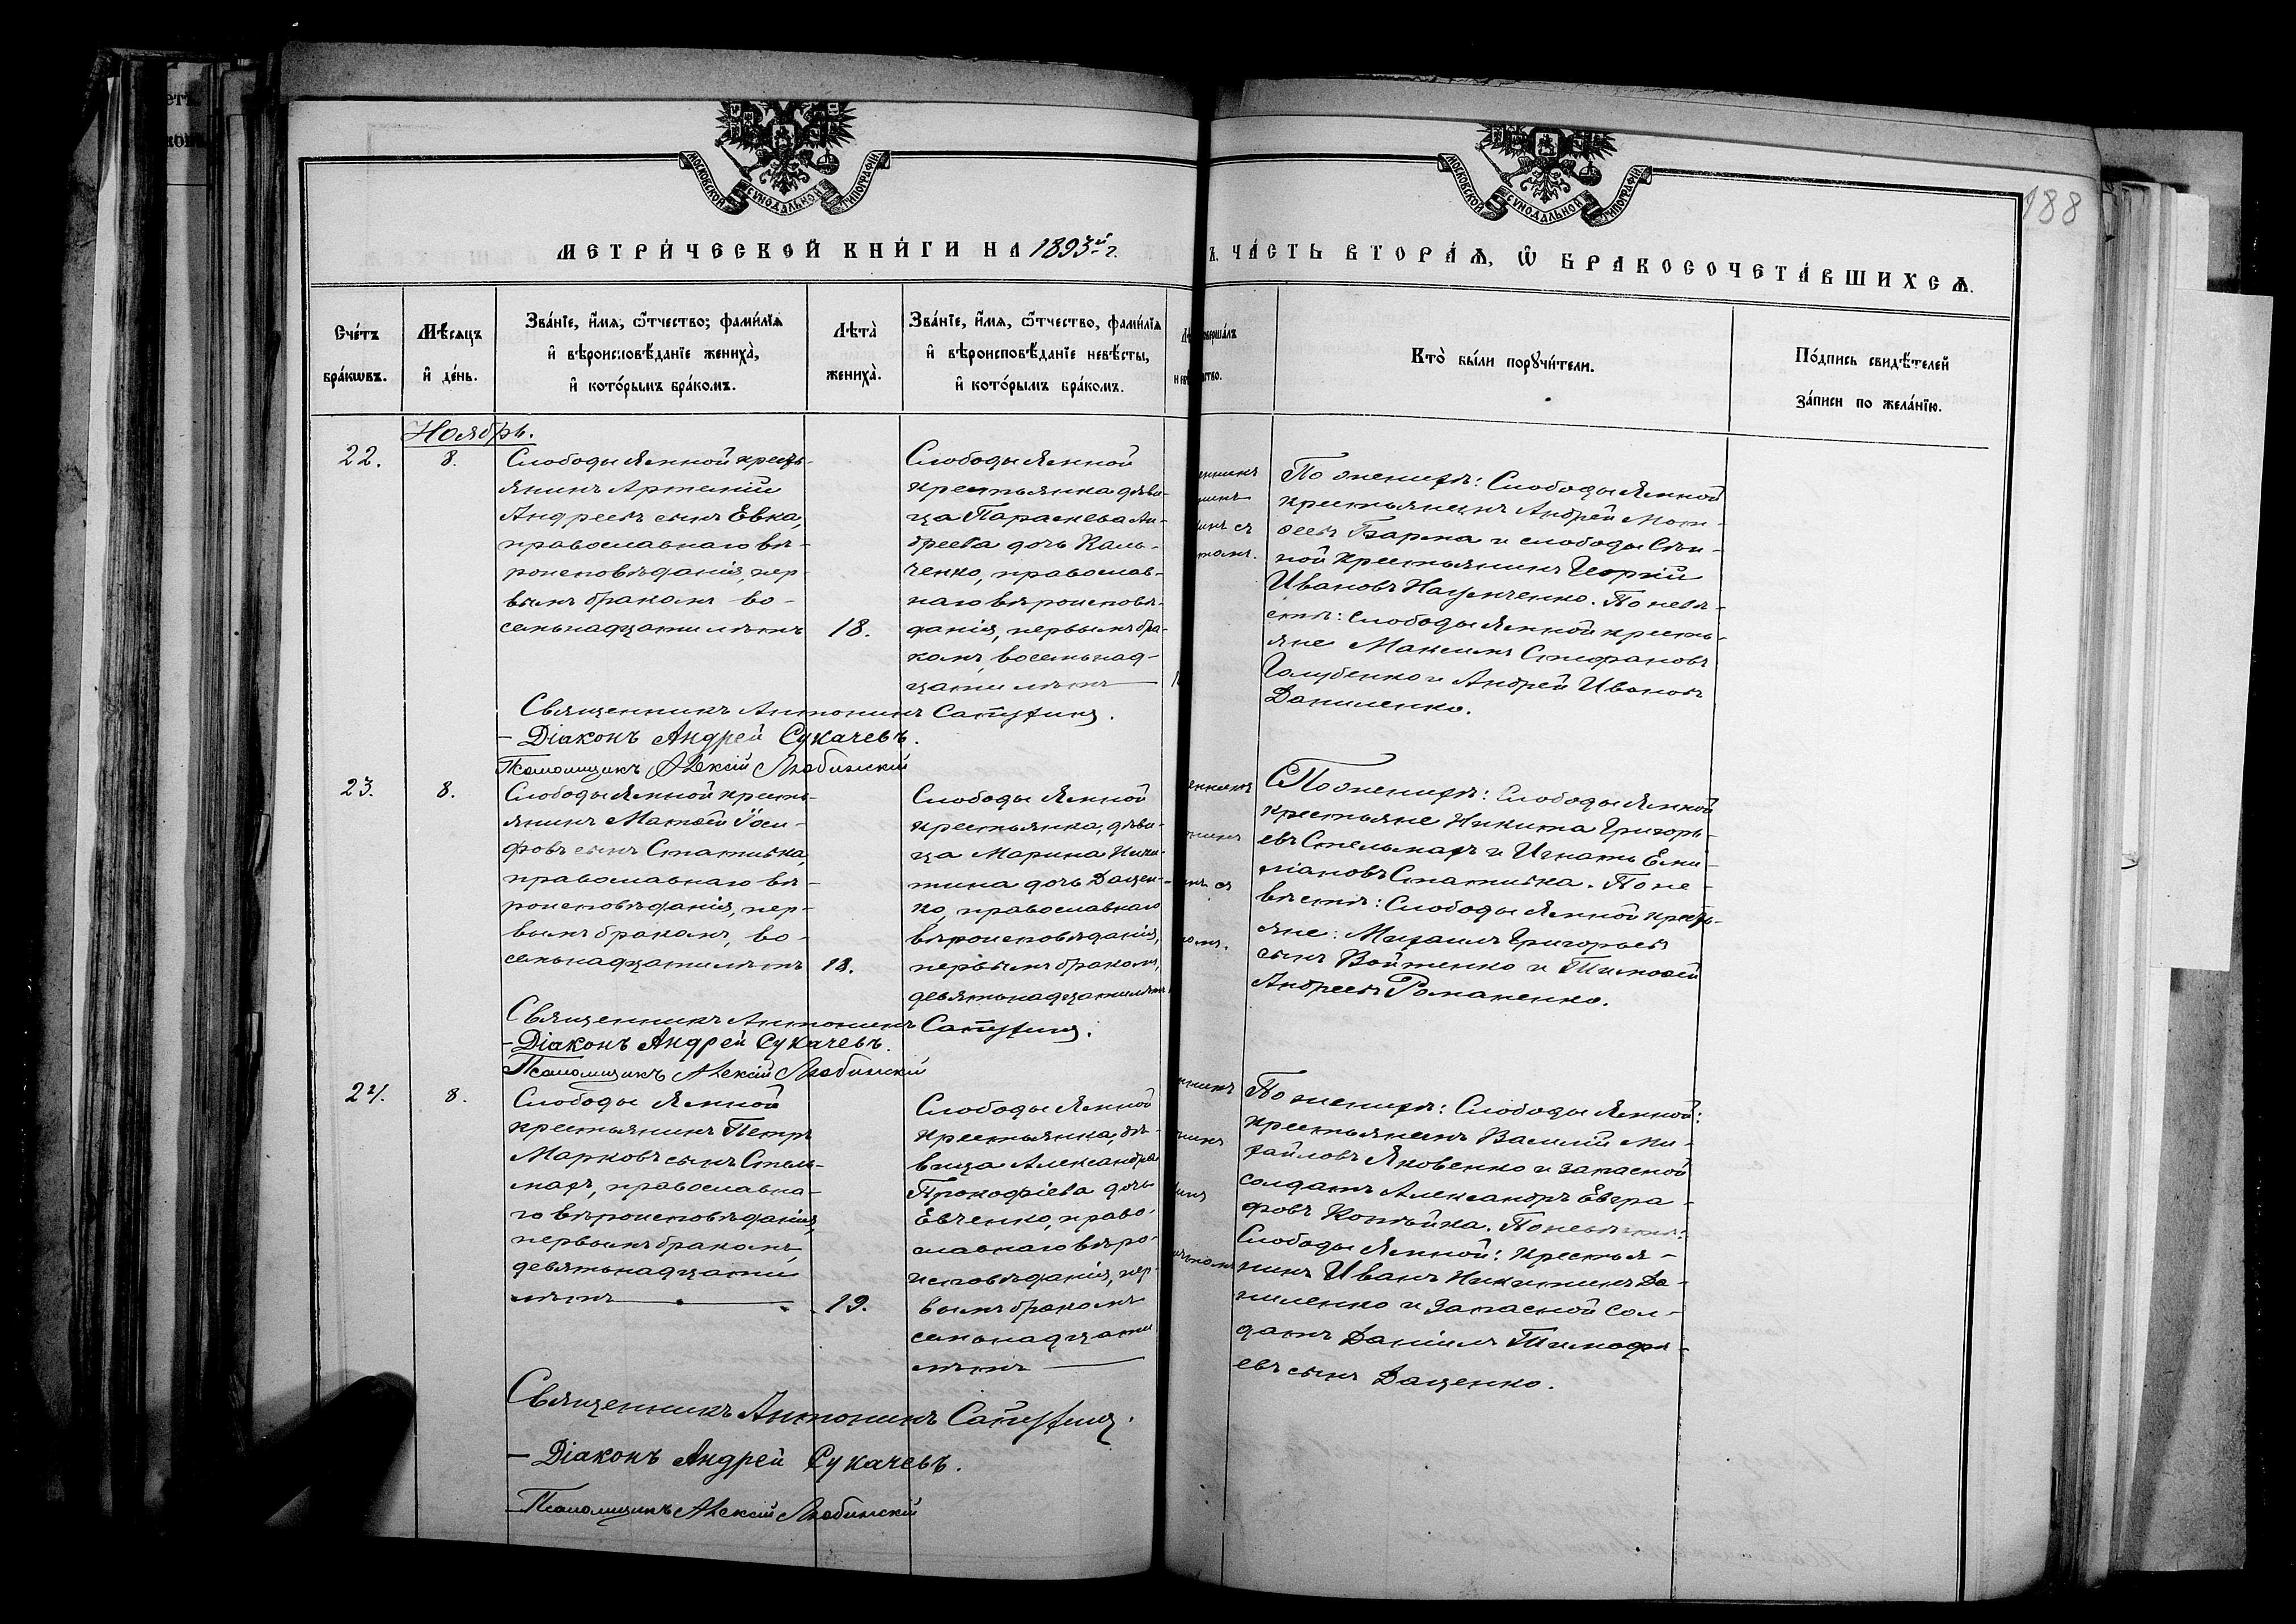 188
МОСКОВСКОЙ СУНОДАЛЬНОЙ ТИПОГРАФІИ
МОСКОВСКОЙ СУНОДАЛЬНОЙ ТИПОГРАФІИ
МЕТРИ́ЧЕСКОЙ КНИ́ГИ НА 1893й г.
ЧА́СТЬ ВТОРА́Ѧ, Ѽ БРАКОСОЧЕТА́ВШИХСѦ.
Сче́тъ бра́кѡвъ.
Мѣ́сѧцъ и҆ де́нь.
Зва́нїе, и҆́мѧ, ѻ҆́тчество; фами́лїѧ
и҆ вѣроисповѣ́данїе жениха̀,
и҆ кото́рымъ бра́комъ.
Лѣта̀ жениха̀.
Зва́нїе, и҆́мѧ, ѻ҆́тчество, фами́лїѧ
и҆ вѣроисповѣ́данїе невѣ́сты,
и҆ кото́рымъ бра́комъ.
Кто̀ бы́ли порꙋчи́тели.
По́дпись свидѣ́телей
за́писи по жела́нїю.
Ноябрь.
22.
8.
Слободы Ямной кресть-
янинъ Артемій
Андреевъ сынъ Евка,
православнаго вѣ-
роисповѣданія, пер-
вымъ бракомъ во-
семьнадцати лѣтъ
18.
Слободы Ямной
крестьянка дѣви-
ца Параскева Ан-
дреева дочь Каль-
ченко, православ-
наго вѣроисповѣ-
данія, первымъ бра-
комъ, восемьнад-
цати лѣтъ
По женихѣ: Слободы Ямной
крестьянинъ Андрей Мат-
ѳеевъ и слободы
ной крестьянинъ Георгій
Ивановъ Науменко. По невѣ-
стѣ: слободы Ямной кресть-
яне Максимъ Стефановъ
Голубенко и Андрей Ивановъ
Даниленко.
Священникъ Антонинъ
- Діаконъ Андрей Сукачевъ.
Псаломщикъ Алексій Любинскій
23.
8.
Слободы Ямной кресть-
янинъ Матѳей Іоси-
фовъ сынъ Статывка,
православнаго вѣ-
роисповѣданія, пер-
вымъ бракомъ, во-
семьнадцати лѣтъ
18.
Слободы Ямной
крестьянка, дѣви-
ца Марина Ники-
тина дочь Дацен-
ко, православнаго
вѣроисповѣданія,
первымъ бракомъ,
девятьнадцати лѣтъ
По женихѣ: Слободы Ямной
крестьяне Никита Григорь-
евъ Стельмахъ и Игнатъ Еми-
ліановъ Статывка. По не-
вѣстѣ: Слободы Ямной кресть-
яне: Михаилъ Григорьевъ
сынъ Войтенко и Тимоѳей
Андреевъ Романенко.
Священникъ Антонинъ
- Діаконъ Андрей Сукачевъ.
Псаломщикъ Алексій Любинскій
24.
8.
Слободы Ямной
крестьянинъ Петръ
Марковъ сынъ Стель-
махъ, православна-
го вѣроисповѣданія,
первымъ бракомъ,
девятьнадцати
лѣтъ
19.
Слободы Ямной
крестьянка, дѣ-
вица Александра
Прокофіева дочь
Евченко, право-
славнаго вѣро-
исповѣданія, пер-
вымъ бракомъ
семьнадцати
лѣтъ
По женихѣ: Слободы Ямной:
крестьянинъ Василій Ми-
хайловъ Яковенко и запасной
солдатъ Александръ Евгра-
фовъ Копѣйка. По невѣстѣ:
Слободы Ямной: крестья-
нинъ Иванъ Никитинъ Да-
ниленко и запасной сол-
датъ Даніилъ Тимофе-
евъ сынъ Даценко.
Священникъ Антонинъ
- Діаконъ Андрей Сукачевъ.
Псаломщикъ Алексій Любинскій